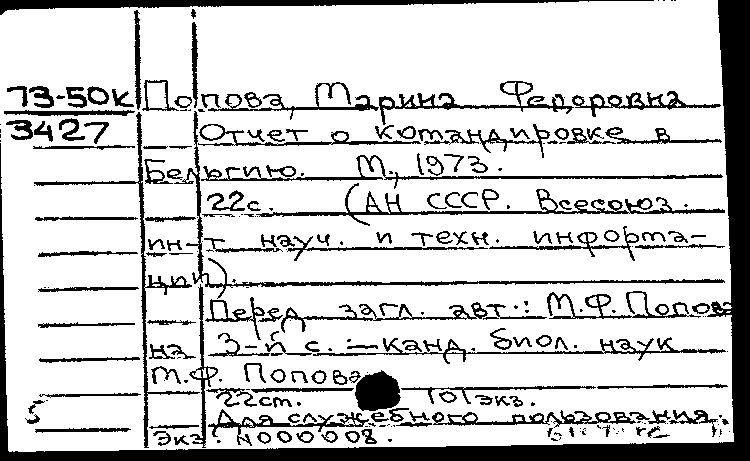 73-50к Попова, Марина Федоровна
3427 Отчет о командировке в
Бельгию. М., 1973.
22с. (АН СССР. Всесоюз.
ин-т науч. и техн. информа-
ции).
Перед загл. авт.: М.Ф. Попова
на 3-й с. :-канд. биол. наук
М.Ф. Попова
22cm. 101экз.
Для служебного пользования.
Экз. N000008.